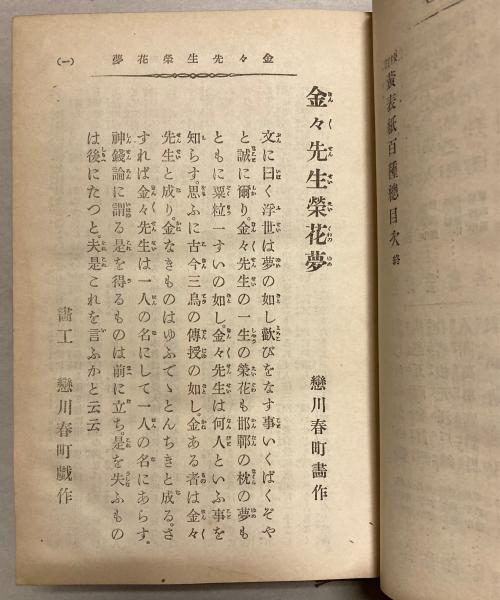 校訂黃表紙百種總目次 終
金々先生榮花夢
(一)
金々先生榮花夢
戀川春町畵作
文に曰く浮世は夢の如し歡びをなす事いくばくぞや
と誠に爾り。金々先生の一生の榮花も邯鄲の枕の夢も
ともに粟粒一すいの如し。金々先生は何人といふ事を
知らす。思ふに古今三鳥の傳授の如し。金ある者は金々
先生と成り。金なきものはゆふでゝとんちきと成る。さ
すれば金々先生は一人の名にして一人の名にあらす。
神錢論に謂る是を得るものは前に立ち。是を失ふもの
は後にたつと。夫是これを言ふかと云云
畵工 戀川春町戲作